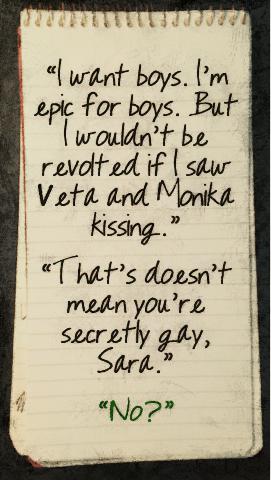 “I want boys. I’m
epic for boys. But
I wouldn’t be
revolted if I saw
Veta and Monika
kissing.”
“That’s doesn’t
mean you’re
secretly gay,
Sara.”
“No?”